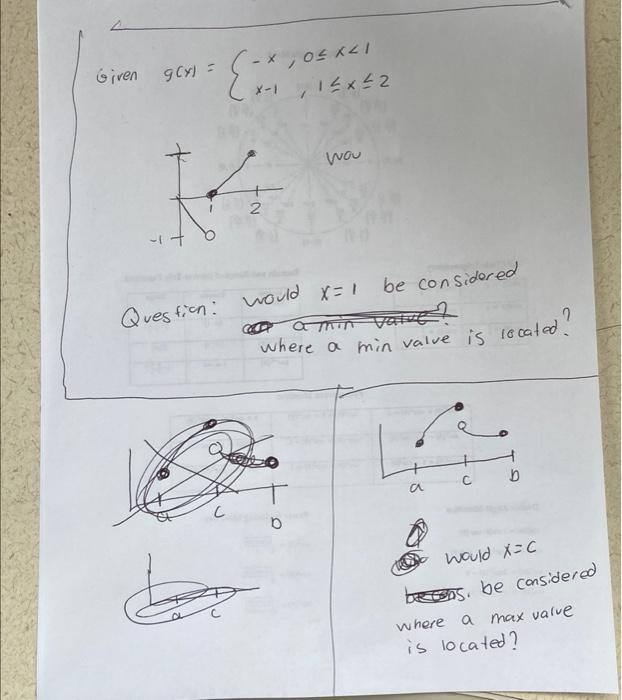 Given g(x) = { -x , 0 ≤ x < 1
x-1 , 1 ≤ x ≤ 2
wou
1
2
-1
Question: would x=1 be considered
a min value?
where a min value is located?
a c b
a c b
would x=c
be considered
where a max value
is located?
a c